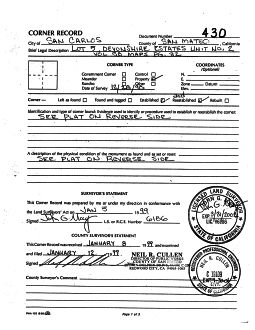 CORNER RECORD
Document Number 430
City of SAN CARLOS County of SAN MATEO California
Brief Legal Description LOT 5 DEVONSHIRE ESTATES UNIT NO. 2
VOL 38 MAPS PG. 32
CORNER TYPE
COORDINATES
(Optional)
Government Corner Control
Meander Property
Rancho Other
Date of Survey
N.
E.
Zone Datum
Elev.
Corner — Left as found Found and tagged Established Reestablished Rebuilt
Identification and type of corner found: Evidence used to identify or procedure used to establish or reestablish the corner:
SEE PLAT ON REVERSE SIDE
A description of the physical condition of the monument as found and as set or reset:
SEE PLAT ON REVERSE SIDE
SURVEYOR'S STATEMENT
This Corner Record was prepared by me or under my direction in conformity with
the Land Surveyors' Act on JAN 5 1999
Signed L.S. or R.C.E. Number 6186
COUNTY SURVEYOR'S STATEMENT
This Corner Record was received JANUARY 8 1999 and examined
and filed JANUARY 12 1999
Signed
NEIL R. CULLEN
DIRECTOR OF PUBLIC WORKS
COUNTY OF SAN MATEO
REDWOOD CITY, CA
County Surveyor's Comment
LICENSED LAND SURVEYOR
STATE OF CALIFORNIA
NEIL R. CULLEN
Page 1 of 2